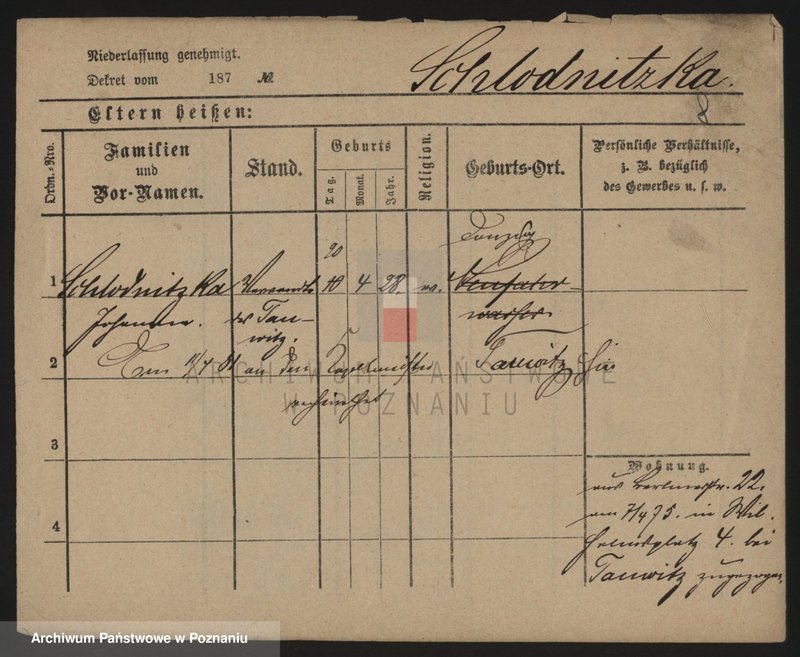 Niederlassung genehmigt.
Dekret vom 187 №
Schlodnitzka.
Eltern heißen:
Ordn.-Nro.
Familien
und
Vor-Namen.
Stand.
Geburts
Tag.
Monat.
Jahr.
Religion.
Geburts-Ort.
Persönliche Verhältnisse,
z. B. bezüglich
des Gewerbes u. s. w.
20
Danzig
1 Schlodnitzka Verwandte 19 4 28. ev. Neufahr-
Johanna. des Tau-
wasser.
witz.
2 Den 11/4 81 an den Kapellmeister Tauwitz hier
verheirathet
3
4
Wohnung.
aus Berlinerstr. 22.
am 7/4 75. in Wil-
helmsplatz 4. bei
Tauwitz zugezogen.
ARCHIWUM PAŃSTWOWE
W POZNANIU
Archiwum Państwowe w Poznaniu